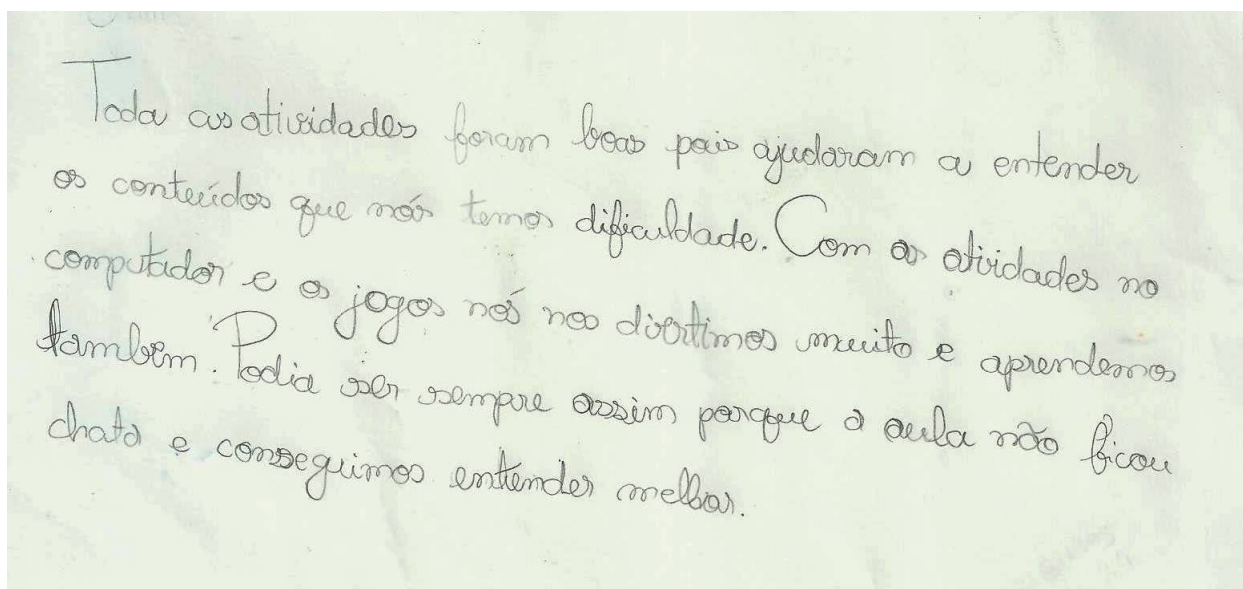 Toda as atividades foram boas pois ajudaram a entender
os conteúdos que nós temos dificuldade. Com as atividades no
computador e os jogos nós nos divertimos muito e aprendemos
também. Podia ser sempre assim porque a aula não ficou
chata e conseguimos entender melhor.